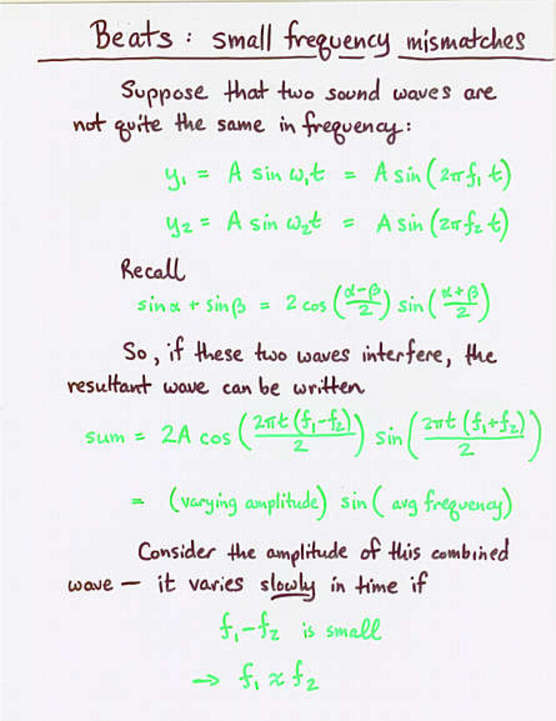 Beats : small frequency mismatches
Suppose that two sound waves are
not quite the same in frequency:
y₁ = A sin ω₁t = A sin (2πf₁ t)
y₂ = A sin ω₂t = A sin (2πf₂ t)
Recall
sin α + sin β = 2 cos ((α-β)/2) sin ((α+β)/2)
So, if these two waves interfere, the
resultant wave can be written
sum = 2A cos (2πt (f₁-f₂)/2) sin (2πt (f₁+f₂)/2)
= (varying amplitude) sin ( avg frequency)
Consider the amplitude of this combined
wave — it varies slowly in time if
f₁-f₂ is small
→ f₁ ≈ f₂